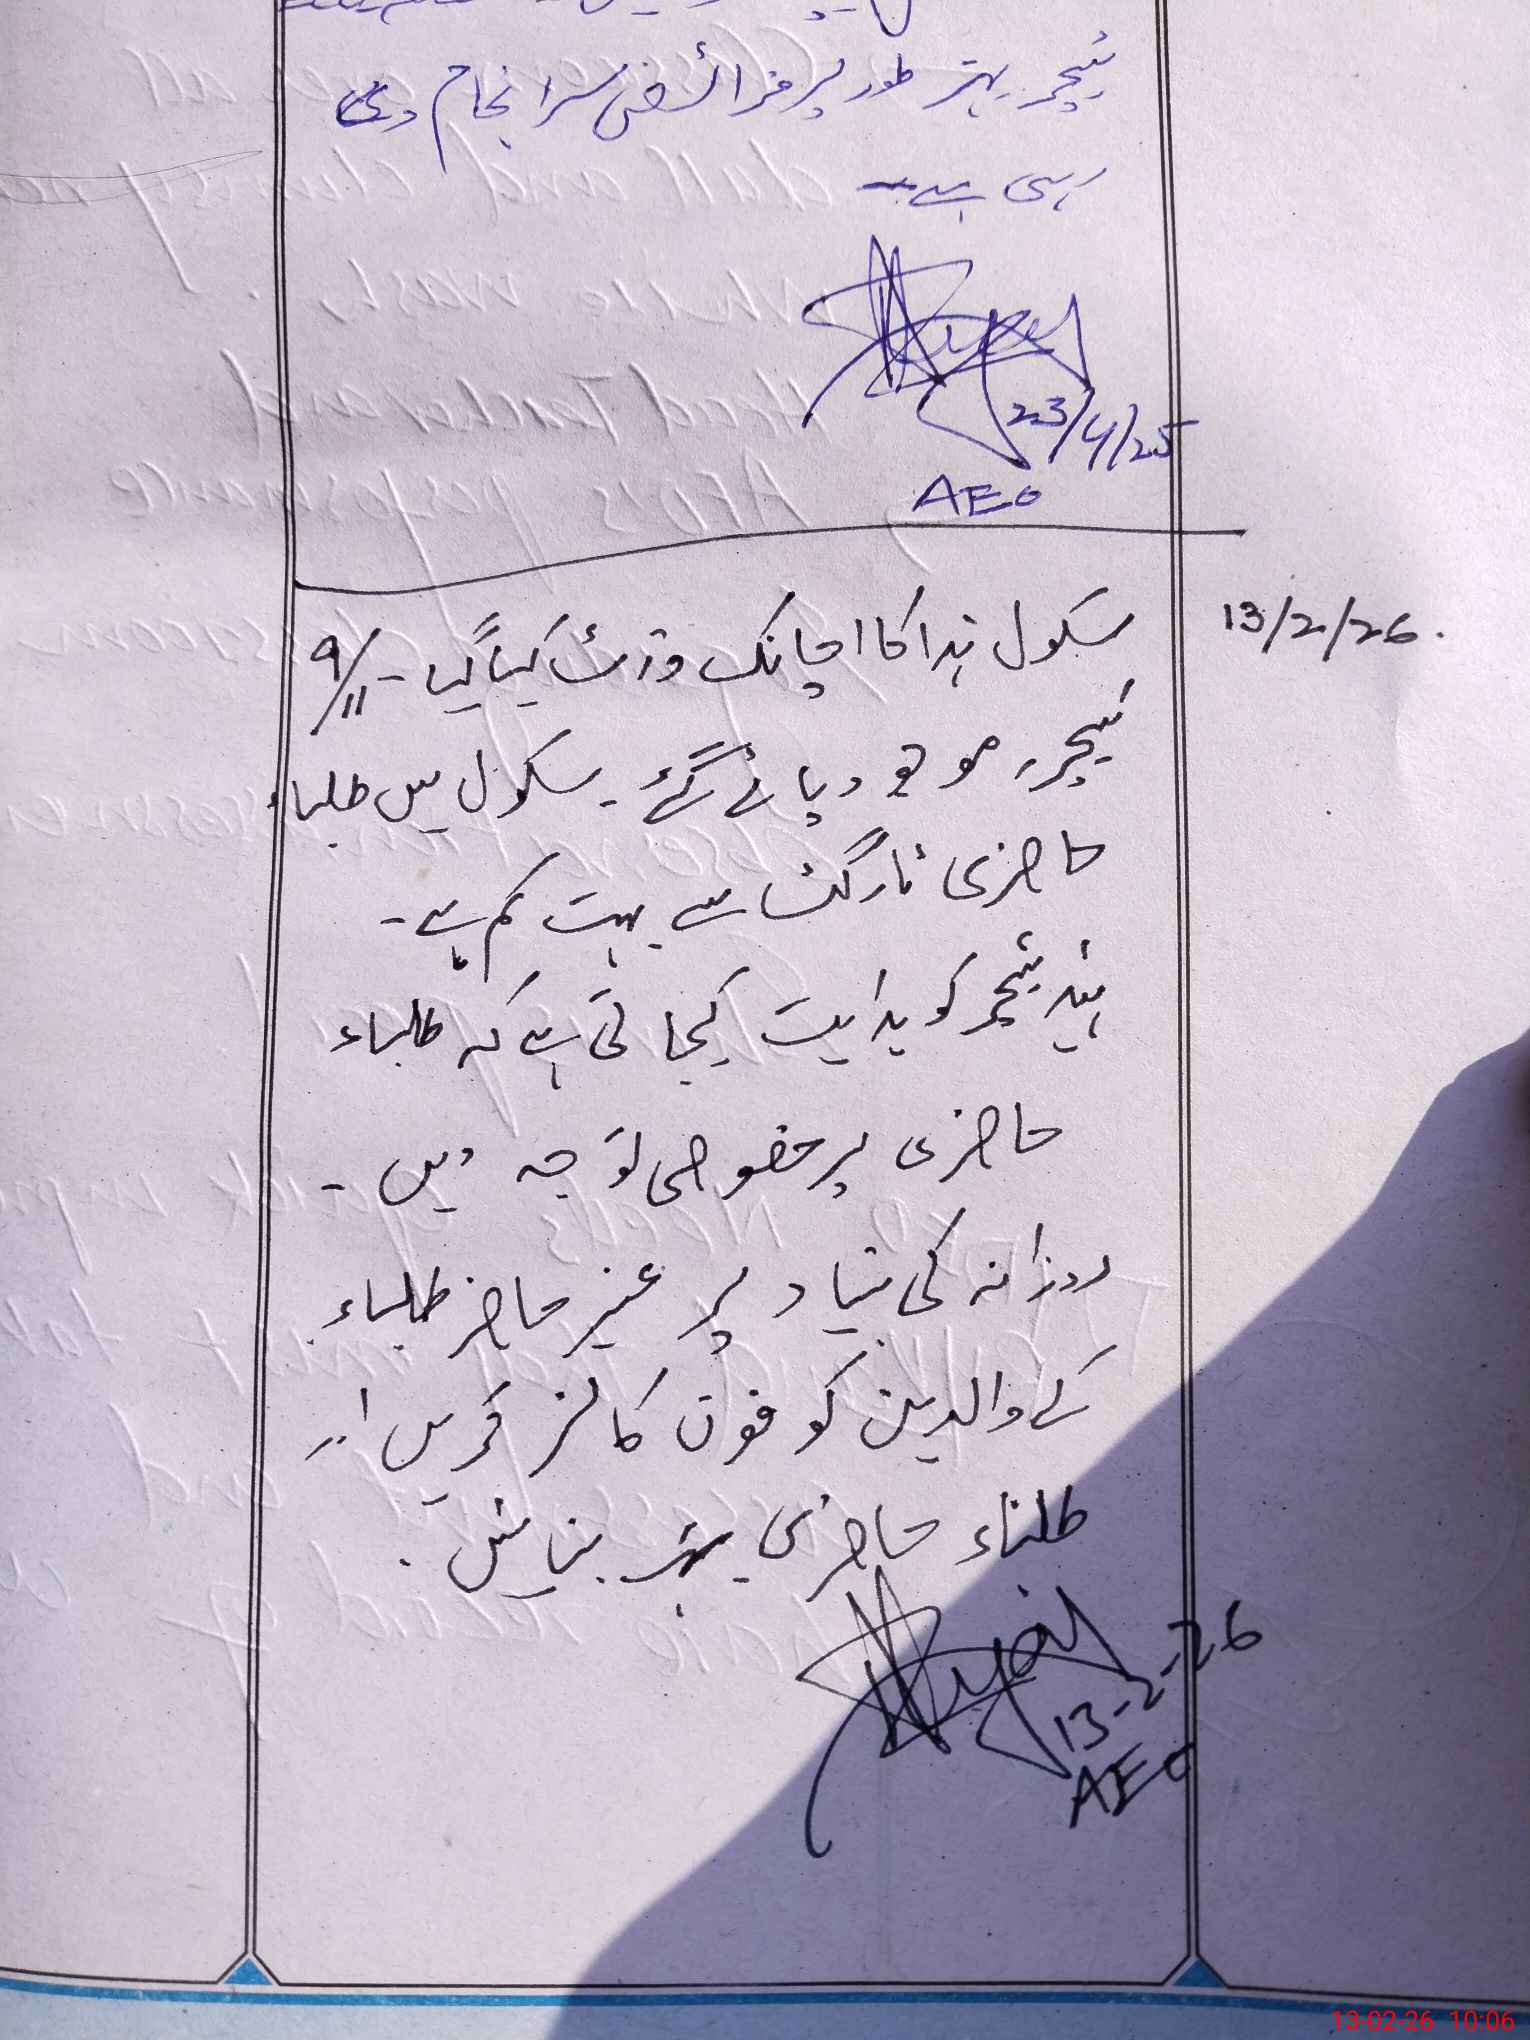 ٹیچر بہتر طور پر فرائض سرانجام دے
رہی ہے۔
23/4/25
AEO
13/2/26.
سکول ہذا کا اچانک وزٹ کیا گیا۔ 9/11
ٹیچرز موجود پائے گئے۔ سکول میں طلباء
حاضری ٹارگٹ سے بہت کم ہے۔
ہیڈ ٹیچر کو ہدایت کیجاتی ہے کہ طلباء
حاضری پر خصوصی توجہ دیں۔
روزانہ کی بنیاد پر غیر حاضر طلباء
کے والدین کو فون کالز کریں اور
طلباء حاضری بہتر بنائیں۔
13-2-26
AEO
13-02-26 10:06